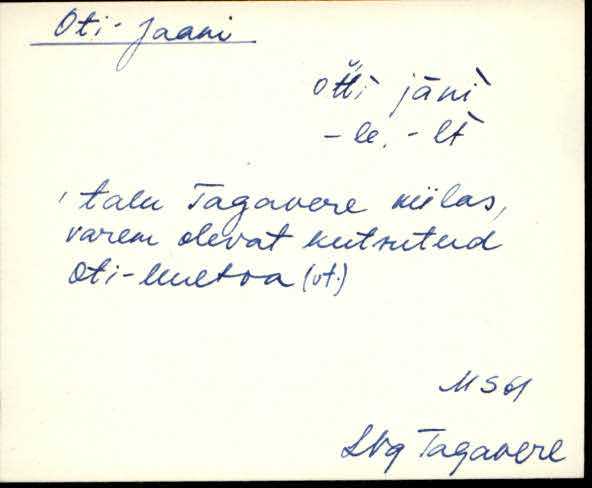 Oti-Jaani
oťťi jānì
-le, -lt
talu Tagavere külas,
varem olevat kutsutud
Oti- (vt.)
MS61
Tagavere